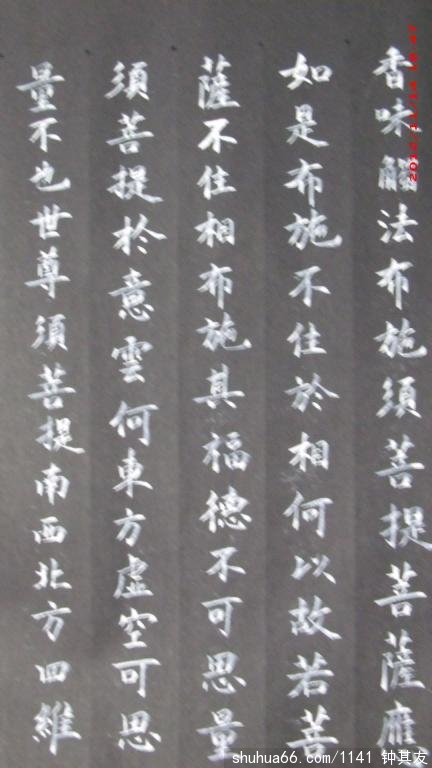 香味觸法布施須菩提菩薩應
如是布施不住於相何以故若菩
薩不住相布施其福德不可思量
須菩提於意雲何東方虛空可思
量不也世尊須菩提南西北方四維
shuhua66.com/1141 钟其友